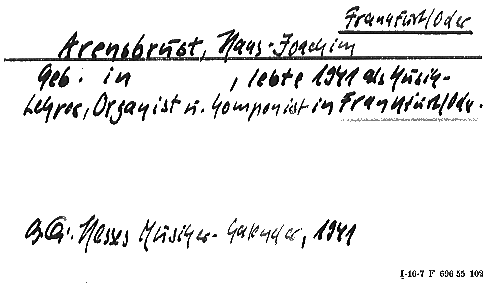 Frankfurt/Oder
Arensbrust, Hans-Joachim
Geb: in , lebte 1941 als Musik-
Lehrer, Organist u. Komponist in Frankfurt/Odr.
Hesses Musiker-Kalender, 1941
I-16-7 F 696 55 109